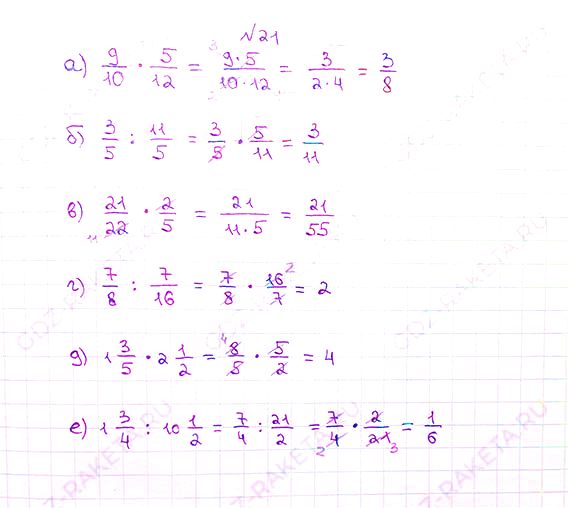 №21
а) 9/10 · 5/12 = 9·5/10·12 = 3/2·4 = 3/8
б) 3/5 : 11/5 = 3/5 · 5/11 = 3/11
в) 21/22 · 2/5 = 21/11·5 = 21/55
г) 7/8 : 7/16 = 7/8 · 16/7 = 2
д) 1 3/5 · 2 1/2 = 8/5 · 5/2 = 4
е) 1 3/4 : 10 1/2 = 7/4 : 21/2 = 7/4 · 2/21 = 1/6